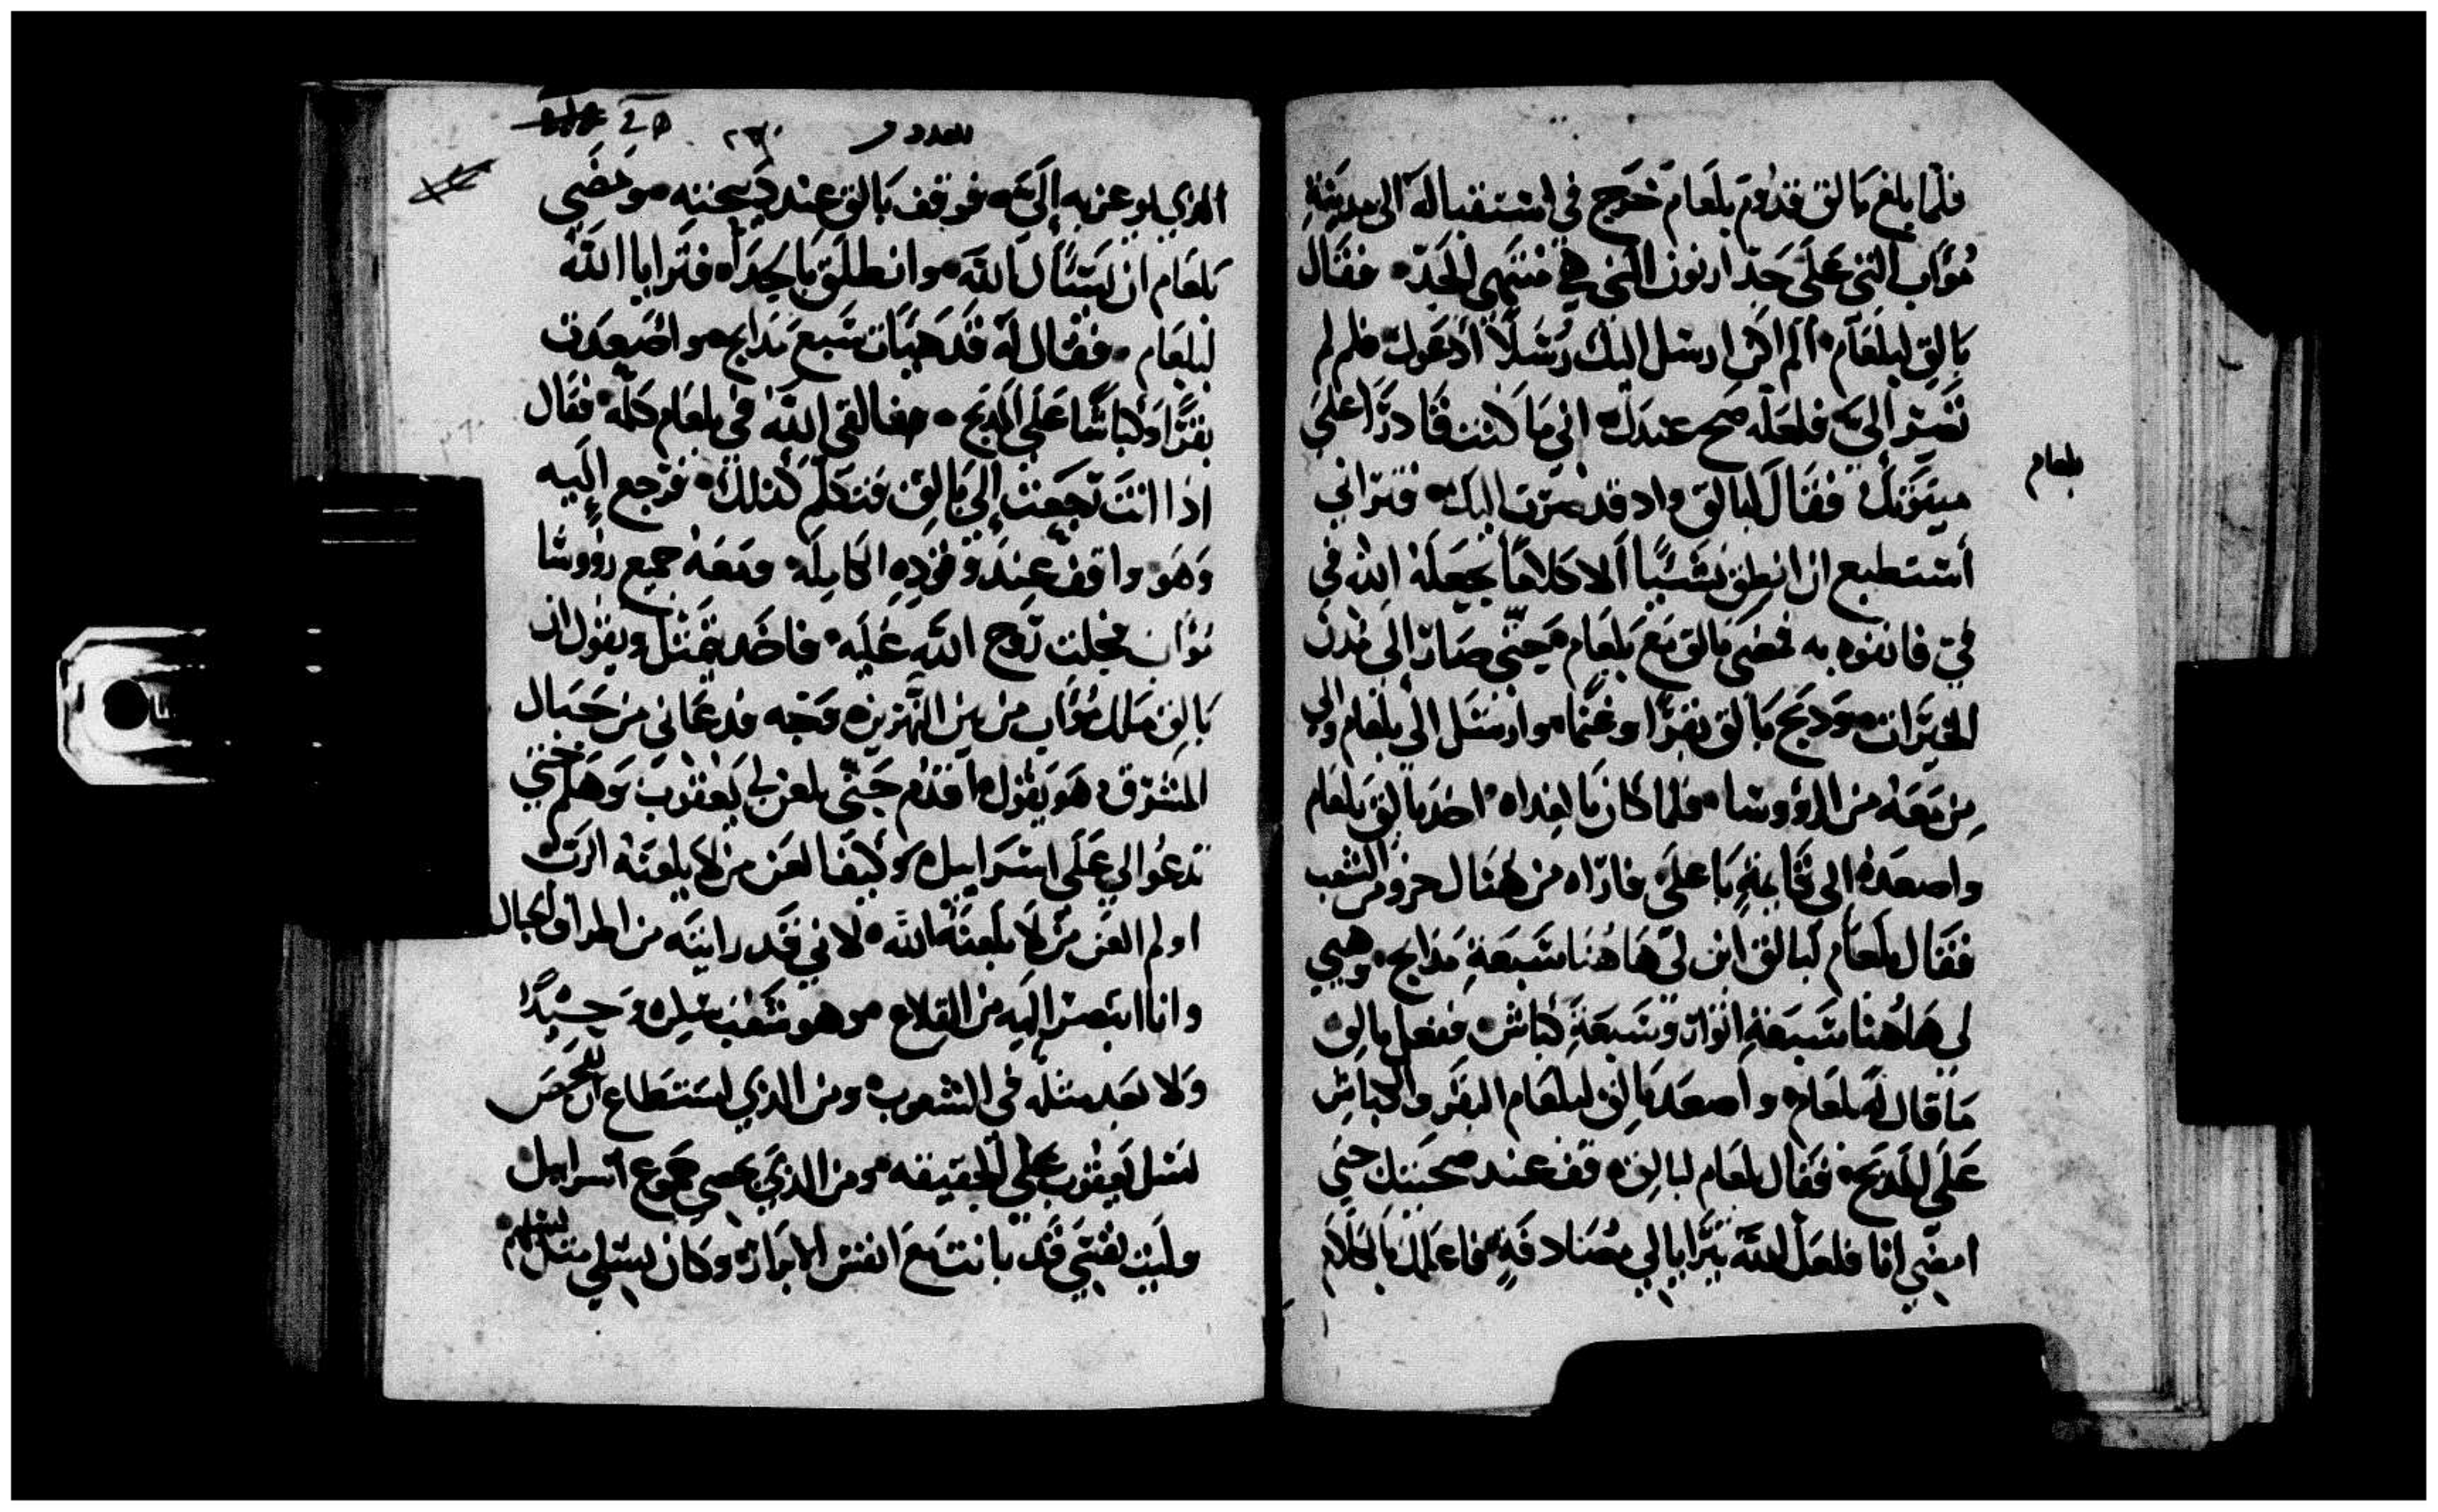 فلما بلغ بالق قدوم بلعام خرج في استقباله الى مدينة
مُوآب التي على حد ارنون التي هي منتهى الحد ٠ فقال
بالق لبلعام ٠ الم اكن ارسل اليك رُسُلًا ادعوك فلم لم
تصير اليّ فلعله صح عندك اني ما كنت قادرًا على
ميترتك فقال لبالق واد قد صرت اليك ٠ فتراني
أستطيع ان انطق بشيًا الا كلامًا يجعله الله في
فيّ فانفوه به فمضى بالق مع بلعام حتى صار الى مدن
الحيرات ٠ ودبح بالق بقرًا وغنمًا ٠ وارسل الى بلعام والى
من معه من الروُوسا ٠ فلما كان بالغداه اخد بالق بلعام
واصعده الى قايمة باعل فاراه من هنال جزو من الشعب
فقال بلعام لبالق ابن لي هاهنا سبعة مدابح ٠ وهيي
لي هاهنا سبعة اثوار وسبعة كباش ففعل بالق
ما قال له بلعام واصعد بالق لبلعام البقر والكباش
على المدبح ٠ فقال بلعام لبالق قف عند صحيتك حتى
امضي انا فلعل الله يترايا لي مصادفةٍ فاعلمك بالكلام
بلعام
العدد
الدي يوعز به إليّ ٠ فوقف بالق عند دبيحته ومضي
بلعام ان ليسًال الله ٠ وانطلق بالجداه فترايا الله
لبلعام ٠ فقال له قد هيات سبع مدابح ٠ واصعدت
بقرًا وكباشًا على المدبح ٠ فالقي الله في بلعام كلمه ٠ فقال
اذا انت رجعت إلى بالق فتكلم كذلك ٠ فرجع إليه
وهو واقف عند وقوده الكامله ومعه جميع روُوسا
موآب فحلت روح الله عليه ٠ فاخد يتمثل ويقول ان
بالق ملك مُوآب من بين النهرين وجه فدعاني من جبال
المشرق وهو يقول اقدم حتى تلعن لي يعقوب وهلم حتى
تدعُوا لي على اسراييل وكيف العن من لا يلعنه الرب
او لم العن من لا يلعنه الله ٠ لاني قد رايته من اطراف الجبال
وانا ابتصر إليه من القلاع ٠ وهو شعب يسكن وحيدًا
ولا يعد مثله في الشعوب ومن الذي استطاع ان يفحص
نسل يعقوب على الحقيقه ٠ ومن الذي يحصي جموع اسراييل
وليت نفسي قد بانت مع انفس الابرار وكان نسلي مثل نسلهم